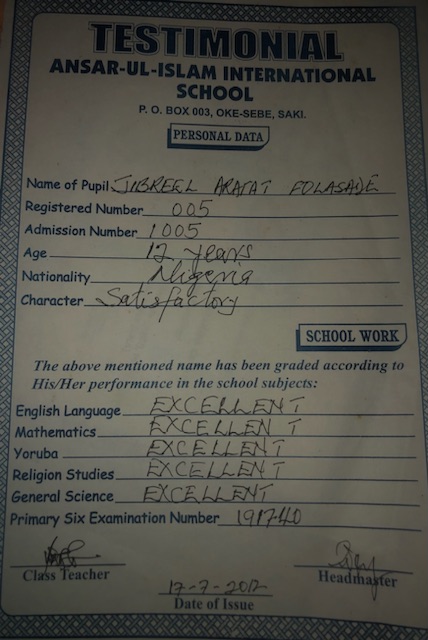 TESTIMONIAL
ANSAR-UL-ISLAM INTERNATIONAL
SCHOOL
P. O. BOX 003, OKE-SEBE, SAKI.
PERSONAL DATA
Name of Pupil JIBREEL ARAFAT FOLASADE
Registered Number 005
Admission Number 1005
Age 12 years
Nationality Nigeria
Character Satisfactory
SCHOOL WORK
The above mentioned name has been graded according to
His/Her performance in the school subjects:
English Language EXCELLENT
Mathematics EXCELLENT
Yoruba EXCELLENT
Religion Studies EXCELLENT
General Science EXCELLENT
Primary Six Examination Number 191740
Class Teacher Headmaster
17-7-2012
Date of Issue